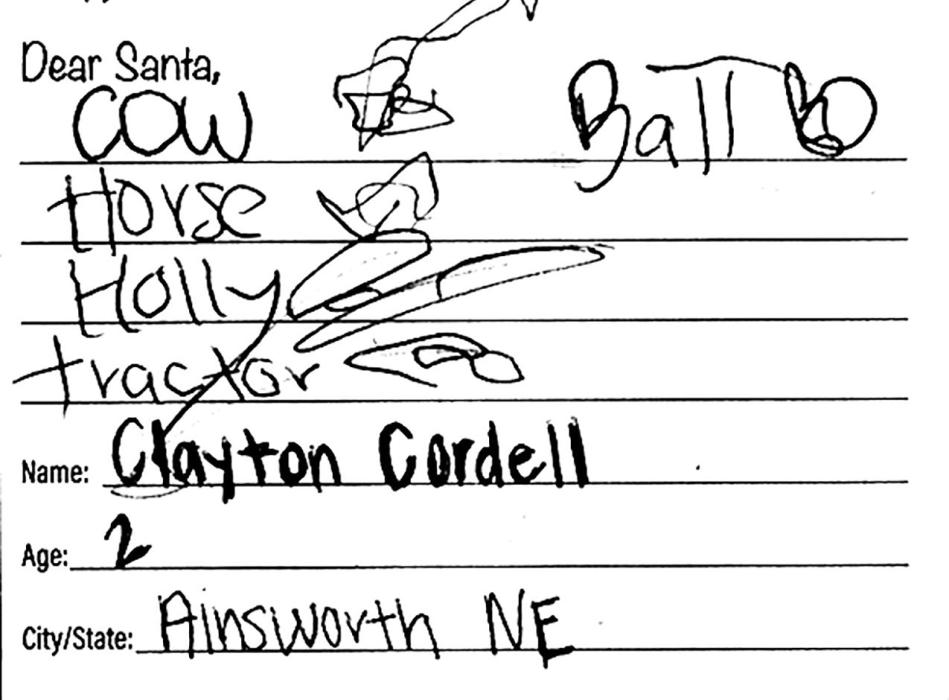 Dear Santa,
COW Ball
Horse
Holly
tractor
Name: Clayton Cordell
Age: 2
City/State: Ainsworth NE